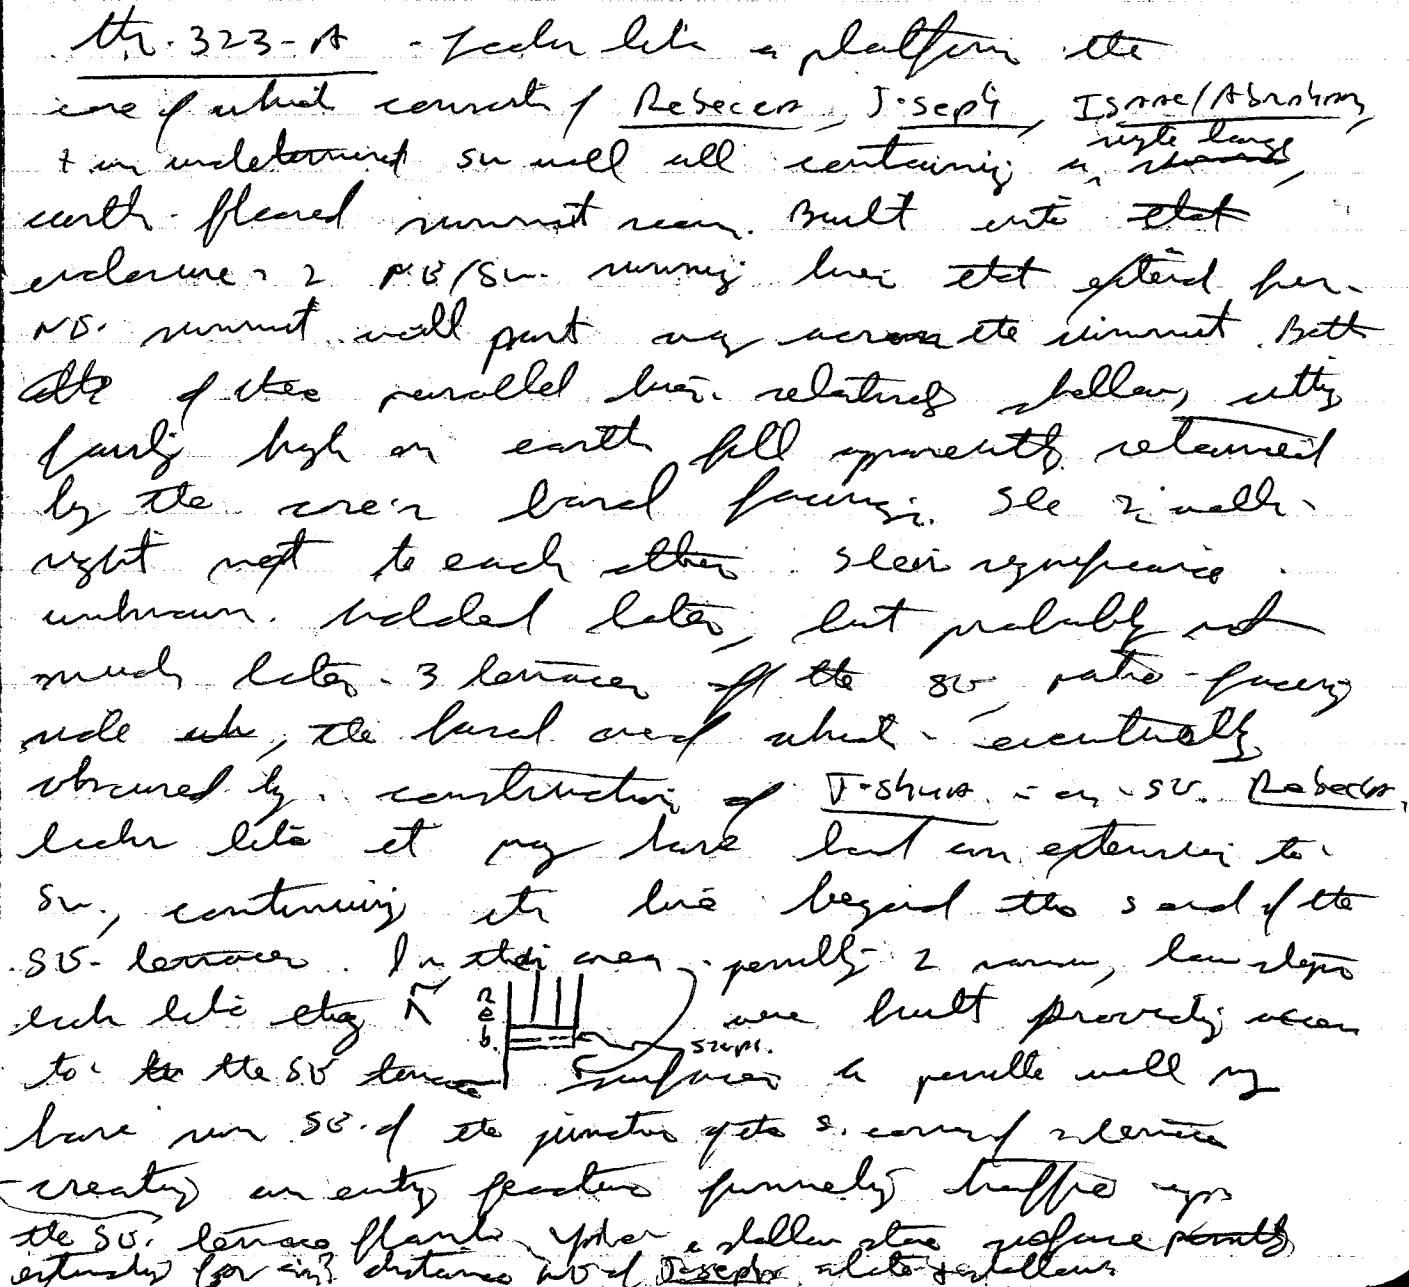 Str. 323-A - looks like a platform the
core of which consists of Rebecca, Joseph, Isaac/Abraham,
+ an undetermined SW wall all containing a single large
earth-floored summit room. Built into that
enclosure = 2 NE/SW running lines that extend from
NE summit wall part way across the summit. Both
of these parallel lines relatively shallow, sitting
fairly high on earth fill apparently retained
by the core's basal facings. See 2 walls
right next to each other. Their significance
unknown. Added later, but probably not
much later - 3 terraces off the SE, patio-facing
side, the basal one of which = eventually
obscured by construction of Joshua = on SE. Rebecca
looks like it may have had an extension to
SW, continuing its line beyond the S end of the
SE terraces. In this area possibly 2 narrow, low steps
look like they N Reb. were built providing access
to the SE terrace steps. surfaces a possible wall may
have run SE of the junction of the S. corner of terrace
creating an entry feature funneling traffic upon
the SE. terrace flank. a shallow stone surface possibly
extending for distance NW of Joseph = late + shallow